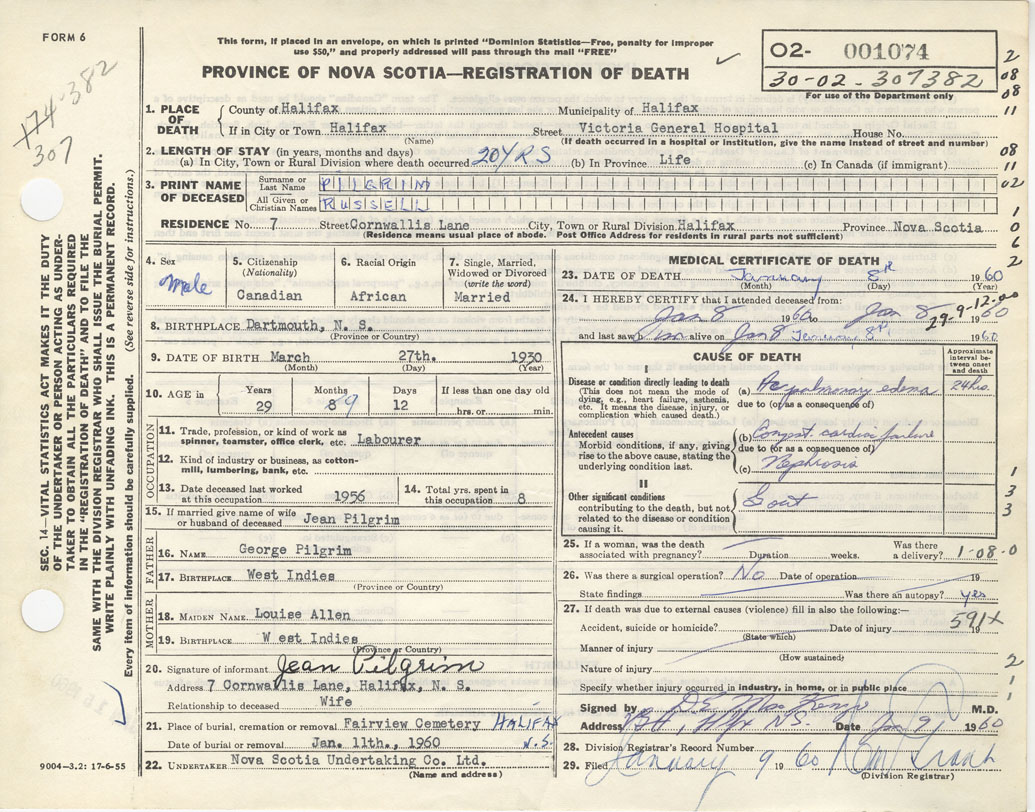 FORM 6
This form, if placed in an envelope, on which is printed "Dominion Statistics—Free, penalty for improper
use $50," and properly addressed will pass through the mail "FREE"
PROVINCE OF NOVA SCOTIA—REGISTRATION OF DEATH
02- 001074
30-02-307382
For use of the Department only
174-382
307
1. PLACE OF DEATH
County of Halifax Municipality of Halifax
If in City or Town Halifax Street Victoria General Hospital House No.
(Name) (If death occurred in a hospital or institution, give the name instead of street and number)
2. LENGTH OF STAY (in years, months and days)
(a) In City, Town or Rural Division where death occurred 20 YRS (b) In Province Life (c) In Canada (if immigrant)
3. PRINT NAME OF DECEASED
Surname or Last Name PILGRIM
All Given or Christian Names RUSSELL
RESIDENCE No. 7 Street Cornwallis Lane City, Town or Rural Division Halifax Province Nova Scotia
(Residence means usual place of abode. Post Office Address for residents in rural parts not sufficient)
4. Sex Male
5. Citizenship (Nationality) Canadian
6. Racial Origin African
7. Single, Married, Widowed or Divorced (write the word) Married
8. BIRTHPLACE Dartmouth, N. S.
(Province or Country)
9. DATE OF BIRTH March 27th. 1930
(Month) (Day) (Year)
10. AGE in Years 29 Months 8 9 Days 12 If less than one day old hrs. or min.
OCCUPATION
11. Trade, profession, or kind of work as spinner, teamster, office clerk, etc. Labourer
12. Kind of industry or business, as cotton-mill, lumbering, bank, etc.
13. Date deceased last worked at this occupation 1956
14. Total yrs. spent in this occupation 8
15. If married give name of wife or husband of deceased Jean Pilgrim
FATHER
16. NAME George Pilgrim
17. BIRTHPLACE West Indies
(Province or Country)
MOTHER
18. MAIDEN NAME Louise Allen
19. BIRTHPLACE West Indies
(Province or Country)
20. Signature of informant Jean Pilgrim
Address 7 Cornwallis Lane, Halifax, N. S.
Relationship to deceased Wife
21. Place of burial, cremation or removal Fairview Cemetery HALIFAX
Date of burial or removal Jan. 11th., 1960 N.S.
22. UNDERTAKER Nova Scotia Undertaking Co. Ltd.
(Name and address)
9004—3.2: 17-6-55
SEC. 14—VITAL STATISTICS ACT MAKES IT THE DUTY
OF THE UNDERTAKER OR PERSON ACTING AS UNDER-
TAKER TO OBTAIN ALL THE PARTICULARS REQUIRED
IN THE "REGISTRATION OF DEATH" AND TO FILE THE
SAME WITH THE DIVISION REGISTRAR WHO SHALL ISSUE THE BURIAL PERMIT.
WRITE PLAINLY WITH UNFADING INK. THIS IS A PERMANENT RECORD.
Every item of information should be carefully supplied. (See reverse side for instructions.)
MEDICAL CERTIFICATE OF DEATH
23. DATE OF DEATH January 8 1960
(Month) (Day) (Year)
24. I HEREBY CERTIFY that I attended deceased from:
Jan 8 1960 to Jan 8 1960
and last saw him alive on Jan 8 1960
29-9-12-00
CAUSE OF DEATH
Approximate interval between onset and death
I
Disease or condition directly leading to death
(This does not mean the mode of dying, e.g., heart failure, asthenia, etc. It means the disease, injury, or complication which caused death.)
(a) Ac pulmonary edema 24 hrs.
due to (or as a consequence of)
Antecedent causes
Morbid conditions, if any, giving rise to the above cause, stating the underlying condition last.
(b) Congest. cardiac failure
due to (or as a consequence of)
(c) Nephrosis
II
Other significant conditions
contributing to the death, but not related to the disease or condition causing it.
Gout
25. If a woman, was the death associated with pregnancy? Duration weeks. Was there a delivery? 1-08-0
26. Was there a surgical operation? No Date of operation 19
State findings Was there an autopsy? yes
27. If death was due to external causes (violence) fill in also the following:—
Accident, suicide or homicide? Date of injury 19
(State which)
591X
Manner of injury
(How sustained)
Nature of injury
Specify whether injury occurred in industry, in home, or in public place
Signed by M.D.
Address N.S. Date Jan 9 1960
28. Division Registrar's Record Number
29. Filed January 9 1960
(Division Registrar)
2
08
08
11
08
11
02
1
0
6
2
1
3
3
2
1
1